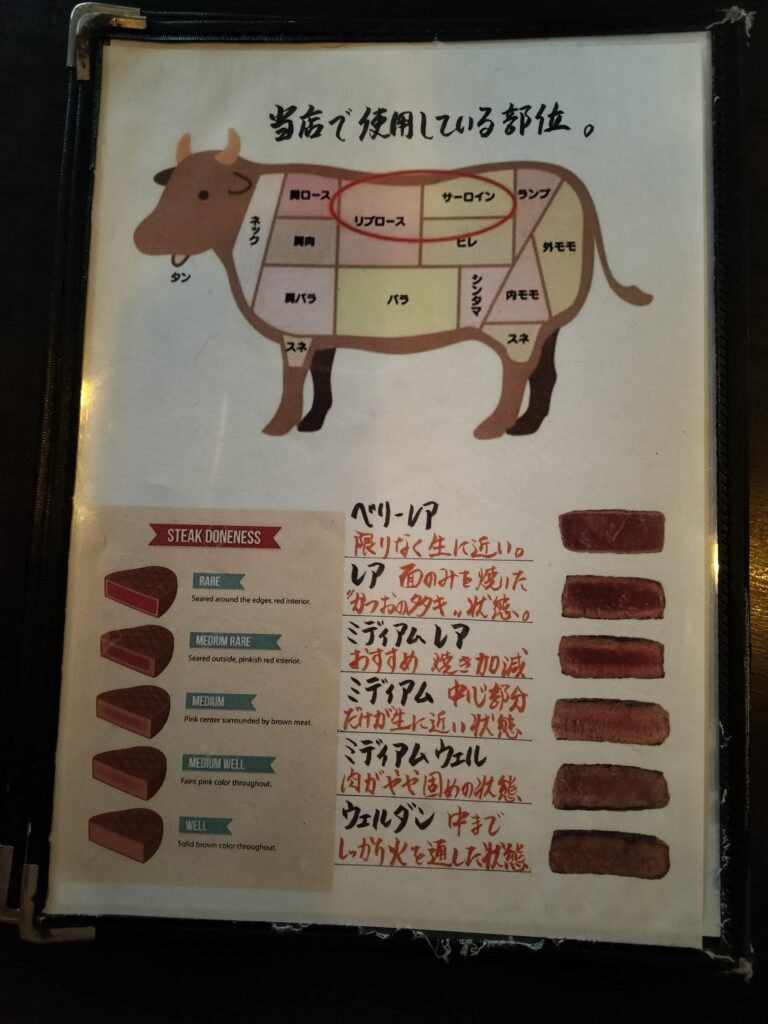 当店で使用している部位。
肩ロース
リブロース
サーロイン
ランプ
ネック
肩肉
ヒレ
外モモ
タン
肩バラ
バラ
シンタマ
内モモ
スネ
スネ
STEAK DONENESS
RARE
Seared around the edges, red interior.
MEDIUM RARE
Seared outside, pinkish red interior.
MEDIUM
Pink center surrounded by brown meat.
MEDIUM WELL
Faint pink color throughout.
WELL
Solid brown color throughout.
ベリーレア
限りなく生に近い。
レア 面のみを焼いた
"かつおのタタキ"状態。
ミディアムレア
おすすめ 焼き加減
ミディアム 中心部分
だけが生に近い状態
ミディアムウェル
肉がやや固めの状態
ウェルダン 中まで
しっかり火を通した状態